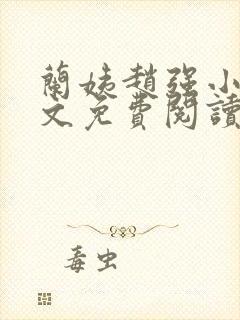 蘭姨趙強小
文免費閱讀
毒虫